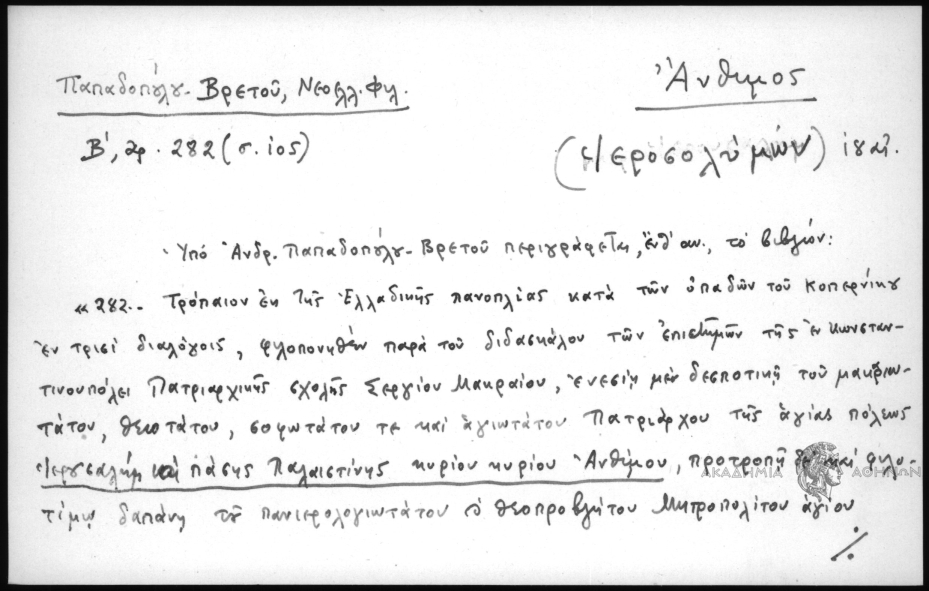 Παπαδοπούλου-Βρετοῦ, Νεοελλ. Φιλ.
Β', ἀρ. 282 (σ. 105)
Ἄνθιμος
(Ἱεροσολύμων)
Ὑπό Ἀνδρ. Παπαδοπούλου-Βρετοῦ περιγράφεται, ἔνθ' ἀν., τό βιβλίον:
«282.- Τρόπαιον ἐκ τῆς Ἑλλαδικῆς πανοπλίας κατά τῶν ὀπαδῶν τοῦ Κοπερνίκου
ἐν τρισί διαλόγοις, φιλοπονηθέν παρά τοῦ διδασκάλου τῶν ἐπιστημῶν τῆς ἐν Κωνσταν-
τινουπόλει Πατριαρχικῆς σχολῆς Σεργίου Μακραίου, ἐνεσίῃ μέν δεσποτικῇ τοῦ μακαριω-
τάτου, θειοτάτου, σοφωτάτου τε καί ἁγιωτάτου Πατριάρχου τῆς ἁγίας πόλεως
Ἱερουσαλήμ καί πάσης Παλαιστίνης κυρίου κυρίου Ἀνθίμου, προτροπῇ δέ καί φιλο-
τίμῳ δαπάνῃ τοῦ πανιερολογιωτάτου θεοπροβλήτου Μητροπολίτου ἁγίου
./.
ΑΚΑΔΗΜΙΑ ΑΘΗΝΩΝ